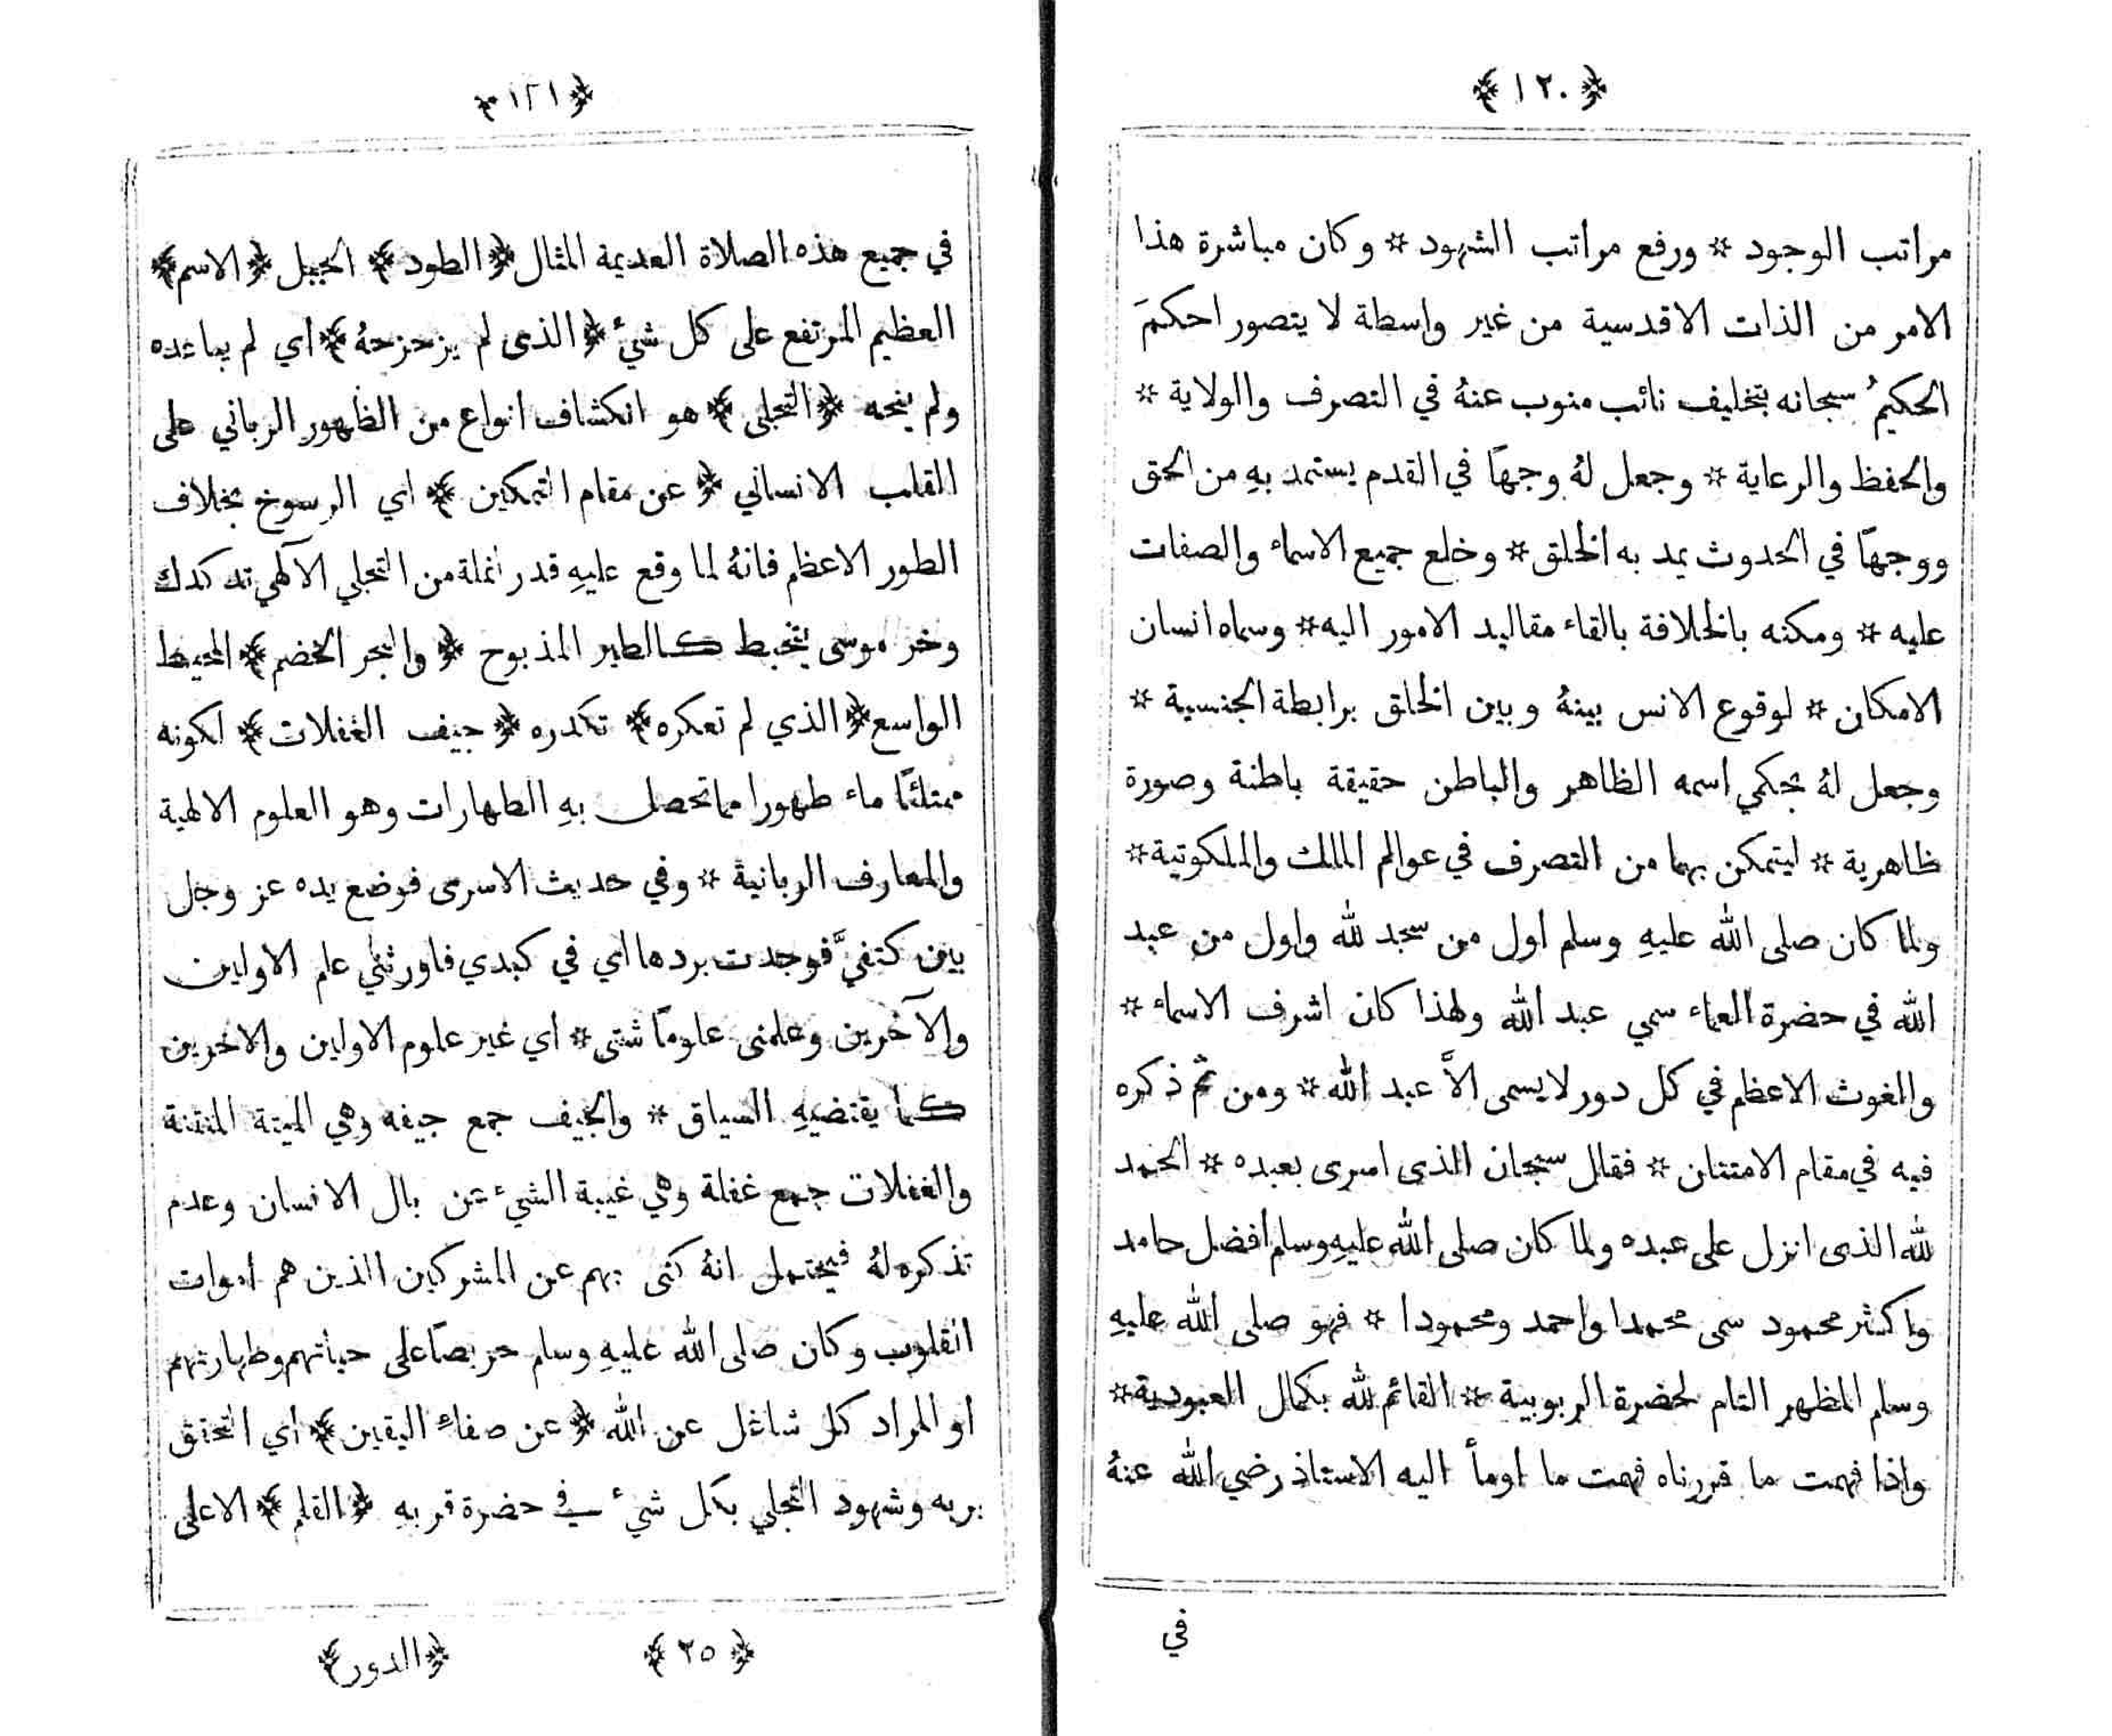 ﴿١٢٠﴾
مراتب الوجود * ورفع مراتب الشهود * وكان مباشرة هذا
الامر من الذات الاقدسية من غير واسطة لا يتصور احكمَ
الحكيمُ سبحانه بتخليف نائب منوب عنهُ في التصرف والولاية *
والحفظ والرعاية * وجعل لهُ وجهاً في القدم يستمد بهِ من الحق
ووجهاً في الحدوث يمد به الخلق * وخلع جميع الاسماء والصفات
عليه * ومكنه بالخلافة بالقاء مقاليد الامور اليه * وسماه انسان
الامكان * لوقوع الانس بينهُ وبين الخلق برابطة الجنسية *
وجعل لهُ بحكمي اسمه الظاهر والباطن حقيقة باطنة وصورة
ظاهرية * ليتمكن بهما من التصرف في عوالم الملك والملكوتية *
ولما كان صلى الله عليهِ وسلم اول من سجد لله واول من عبد
الله في حضرة العماء سمي عبد الله ولهذا كان اشرف الاسماء *
والغوث الاعظم في كل دور لا يسمى الاَّ عبد الله * ومن ثم ذكره
فيه في مقام الامتنان * فقال سبحان الذى اسرى بعبده * الحمد
لله الذى انزل على عبده ولما كان صلى الله عليهِ وسلم افضل حامد
واكثر محمود سمى محمدا واحمد ومحمودا * فهو صلى الله عليهِ
وسلم المظهر التام لحضرة الربوبية * القائم لله بكمال العبودية *
واذا فهمت ما قررناه فهمت ما اومأ اليه الاستاذ رضي الله عنهُ
في
﴿١٢١﴾
في جميع هذه الصلاة العديمة المثال ﴿الطود﴾ الجبل ﴿الاسم﴾
العظيم المرتفع على كل شيءٍ ﴿الذى لم يزحزحهُ﴾ اي لم يباعده
ولم ينحه ﴿التجلى﴾ هو انكشاف انواع من الظهور الرباني على
القلب الانساني ﴿عن مقام التمكين﴾ اي الرسوخ بخلاف
الطور الاعظم فانهُ لما وقع عليهِ قدر انملة من التجلي الآلهي تدكدك
وخر موسى يتخبط كالطير المذبوح ﴿والبحر الخضم﴾ المحيط
الواسع ﴿الذي لم تعكره﴾ تكدره ﴿جيف الغفلات﴾ لكونه
ممتلئاً ماء طهورا مما تحصل بهِ الطهارات وهو العلوم الالهية
والمعارف الربانية * وفي حديث الاسرى فوضع يده عز وجل
بين كتفيَّ فوجدت بردها اي في كبدي فاورثني علم الاولين
والآخرين وعلمنى علوماً شتى * اي غير علوم الاولين والاخرين
كما يقتضيهِ السياق * والجيف جمع جيفه وهي الميتة المنتنة
والغفلات جمع غفلة وهي غيبة الشيء عن بال الانسان وعدم
تذكره لهُ فيحتمل انهُ كنى بهم عن المشركين الذين هم اموات
القلوب وكان صلى الله عليهِ وسلم حريصاً على حياتهم وطهارتهم
او المراد كل شاغل عن الله ﴿عن صفاء اليقين﴾ اي التحقق
بربه وشهود التجلي بكل شيء في حضرة قربهِ ﴿القلم﴾ الاعلى
﴿٢٥﴾ ﴿الدور﴾